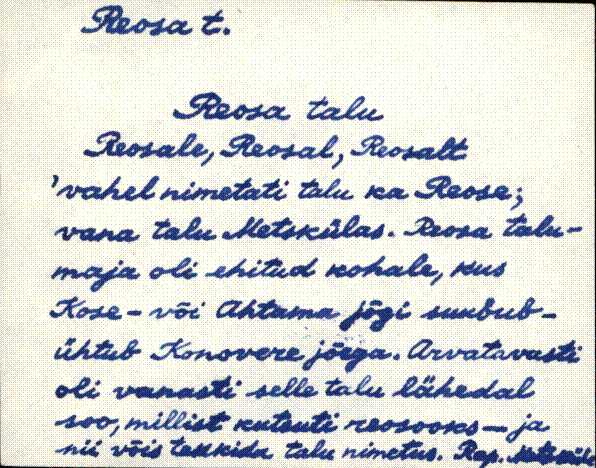 Reosa t.
Reosa talu
Reosale, Reosal, Reosalt
'vahel nimetati talu ka Reose;
vana talu Metskülas. Reosa talu-
maja oli ehitud kohale, kus
Kose- või Ahtama jõgi suubub-
ühtub Konovere jõega. Arvatavasti
oli vanasti selle talu lähedal
soo, millist kutsuti reosooks – ja
nii võis tekkida talu nimetus. Rap.